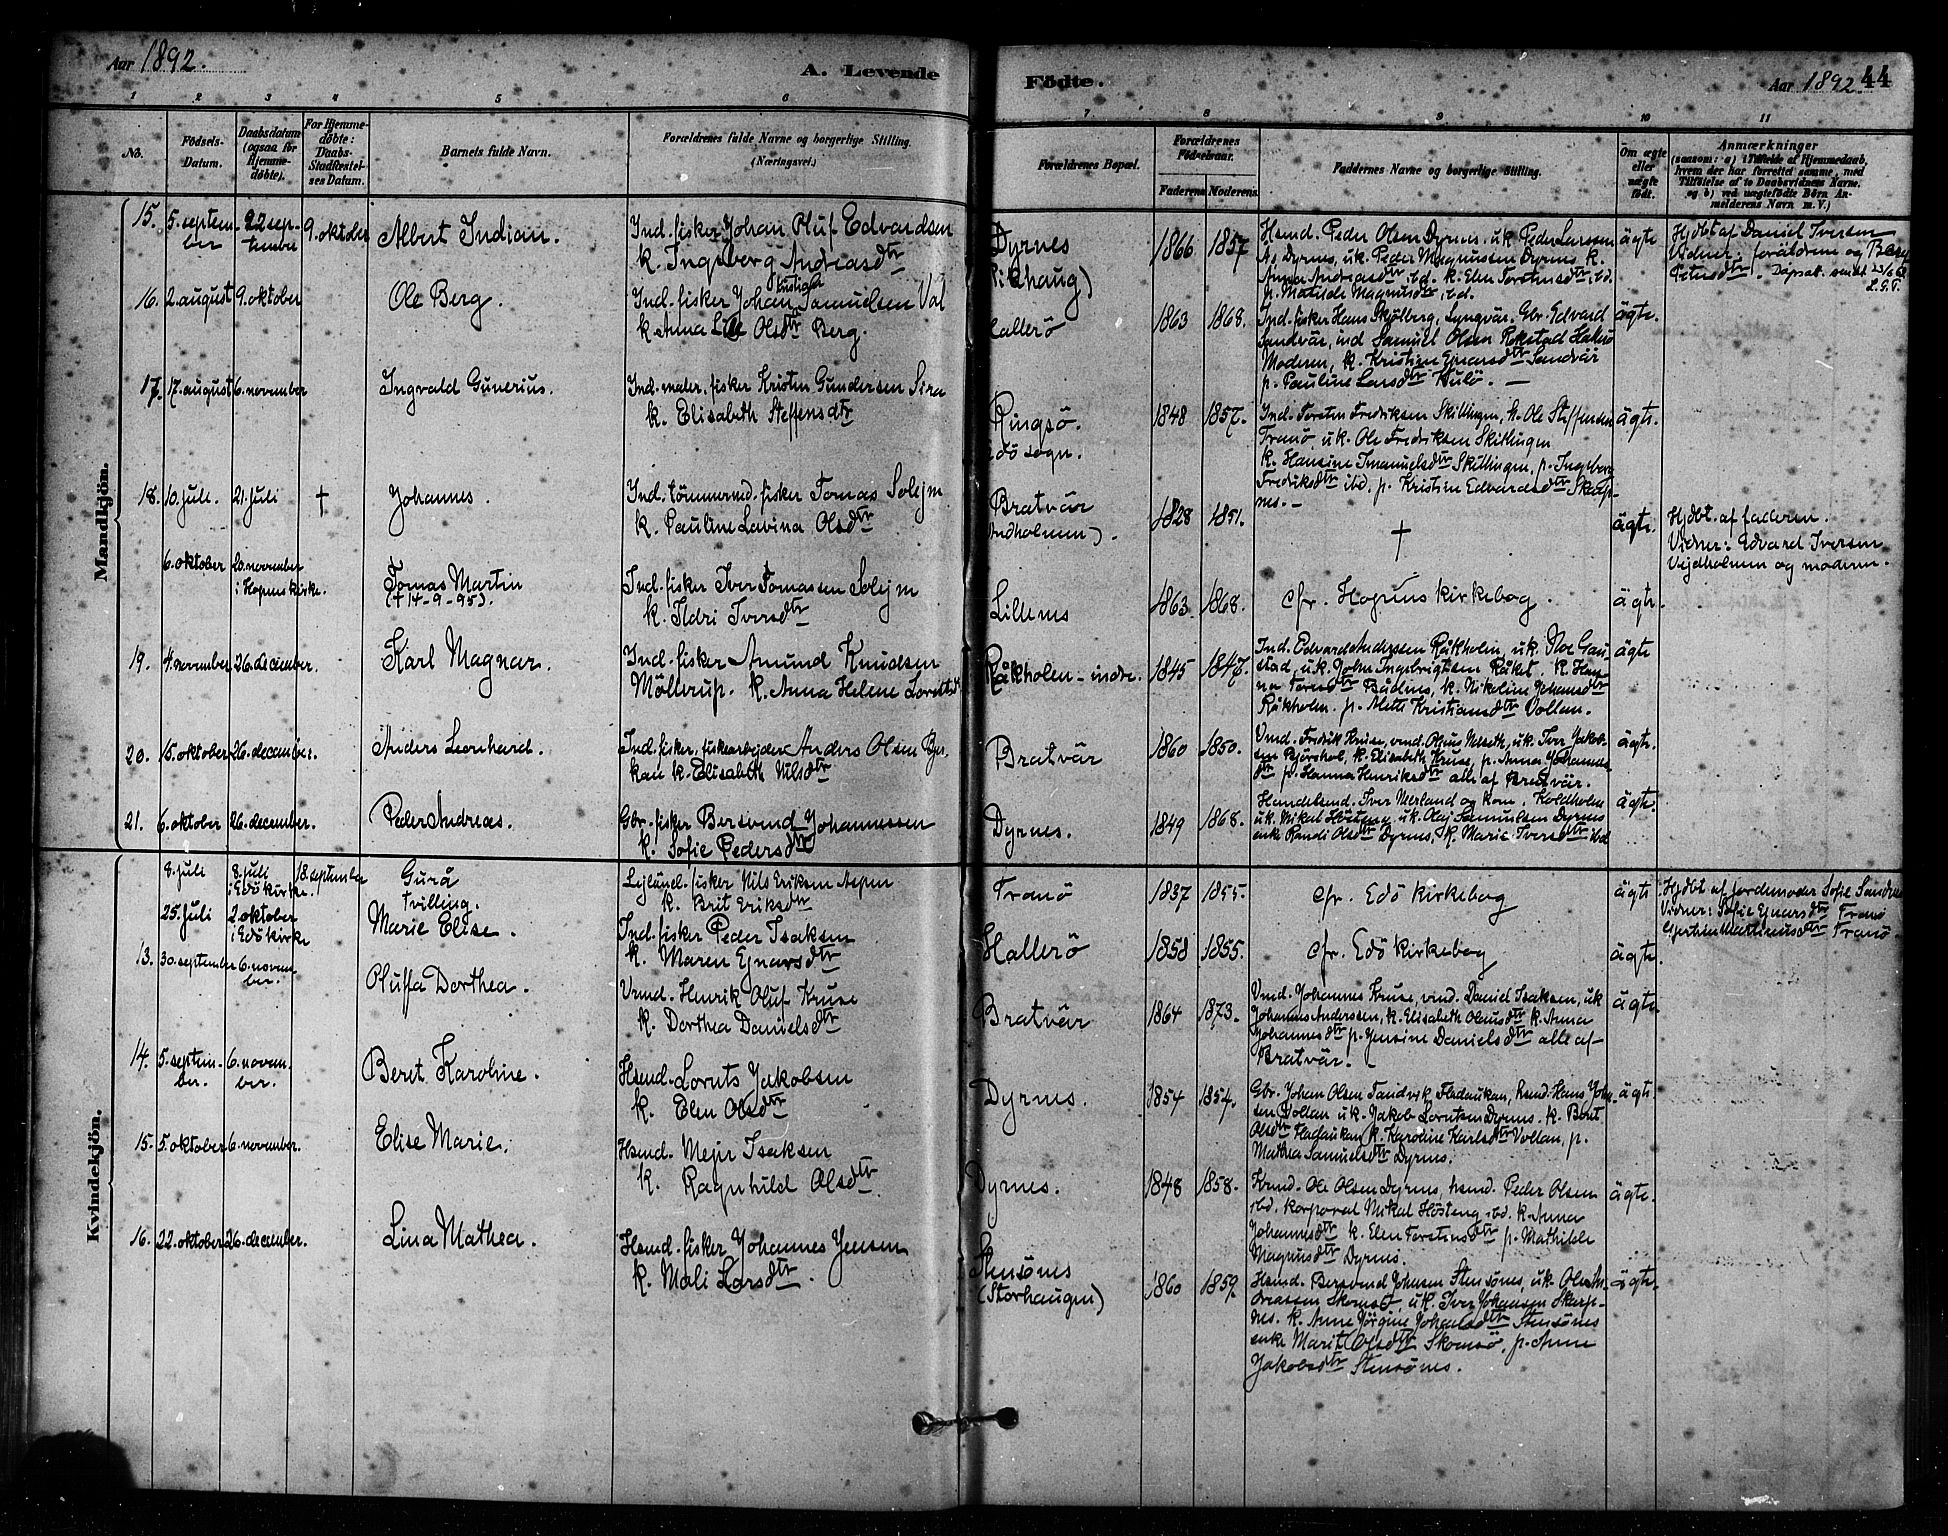 Aar 1892.
A. Levende Födte.
Aar 1892
44
1 2 3 4 5 6 7 8 9 10 11
No.
Födsels-Datum.
Daabsdatum (ogsaa for Hjemmedöbte).
For Hjemmedöbte: Daabs-Stadfæstelses Datum.
Barnets fulde Navn.
Forældrenes fulde Navne og borgerlige Stilling. (Næringsvei.)
Forældrenes Bopæl.
Forældrenes Födselsaar.
Faderens Moderens
Faddernes Navne og borgerlige Stilling.
Om ægte eller uægte födt.
Anmærkninger
(saasom: a) i Tilfælde af Hjemmedaab, hvem der har forrettet samme, med Tilföielse af to Daabsvidners Navne, og b) ved uægtefödte Börn Anmelderens Navn m. V.)
Mandkjön.
15. 5. september 22 september 9. oktober Albert Indian. Ind. fisker Johan Oluf Edvardsen
k. Ingeborg Andreasdtr
Dyrnes 1866 1857
Hsmd. Peder Olsen Dyrnes. u.k. Peder Larssen
As Dyrnes, u.k. Peder Magnussen Dyrnes k.
Anna Andreasdtr ibd. k. Elen Torstensdtr, ibd.
p. Matilde Magnusdtr, ibd.
ägte
Hjdbt af Daniel Iversen
Vidner: forældrene og
Petersdtr.
16. 2. august 9. oktober Ole Berg. Ind. fisker Johan Samuelsen Val
k. Anna Olsdtr Berg.
Hallerö 1863 1868.
Ind. fisker Hans Skjölberg, Lyngvär. Gbr. Edvard
Sandvär, ind Samuel Olsen Rokstad
Moderen, k. Kristine Ejnarsdtr Sandvär
p. Pauline Larsdtr
ägte.
17. 17. august 6. november Ingvald Gunerius. Ind. maler. fisker Kristen Gundersen Sira
k. Elisabeth Steffensdtr
Ringsö.
Edö sogn.
1848 1857.
Ind. Torsten Fredriksen Skillingen, h. Ole Steffensen
Tranö u.k. Ole Fredriksen Skillingen
k. Hansine Imanuelsdtr Skillingen, p. Ingeborg
Fredriksdtr ibd, p. Kristine Edvardsdtr Skarp-
nes. -
ägte.
18. 10. juli. 21. juli † Johannes. Ind. tömmermd. fisker Tomas Solejm
k. Pauline Lavina Olsdtr
Bratvär
1828 1851.
†
ägte.
Hjdbt. af faderen.
Vidner: Edvard Iversen
Vejdholmen og moderen.
6. oktober 20. november i Hopens kirke. Tomas Martin
(† 14-9-95).
Ind. fisker Iver Tomassen Solejm
k. Ildri Iversdtr
Lillenes 1863. 1868.
cfr. Hopens kirkebog.
ägte.
19. 4. november 26. december. Karl Magnar. Ind. fisker Amund Knudsen
Möllerup. k. Anna Helene
Råkholen - indre. 1845 1847.
Ind. Edvard Andersen Råkholm, u.k. Ole Gau-
stad, u.k. John Ingebrigtsen Råket. k. Han-
na k. Nikoline Johansdtr
Råkholm. p. Mette Kristiansdtr Vollan.
ägte
20. 15. oktober 26. december. Anders Leonhard. Ind. fisker, fiskearbejder Anders Olsen
k. Elisabeth Nilsdtr
Bratvär 1860 1850.
Vmd. Fredrik Kruse, vmd. Olaus Nilseth, u.k. Iver Jakob-
sen Björshol, k. Elisabeth Kruse, p. Anna Johannes-
dtr p. Hanna Henriksdtr alle af Bratvär.
ägte.
21. 6. oktober 26. december. Peder Andreas. Gbr. fisker Bersvend Johannessen
k. Sofie Pedersdtr
Dyrnes. 1849 1868.
Handelsmd. Iver Nerland og kone. Koldholm
u.k. Mikal Hösteng u.k. Olaj Samuelsen Dyrnes
enke Randi Olsdtr Dyrnes, k. Marie Iversdtr ibd
ägte.
Kvindekjön.
8. juli 8. juli i Edö kirke. 18. september Gurå
Tvilling.
Lejländ. fisker Nils Eriksen Aspen
k. Brit Eriksdtr
Tranö 1837 1855.
cfr. Edö kirkebog
ägte
Hjdbt af jordemoder Sofie
Vidner: Sofie Ejnarsdtr Tranö
Martinusdtr Tranö.
25. juli 2. oktober i Edö kirke Marie Elise. Ind. fisker Peder Isaksen
k. Maren Ejnarsdtr
Hallerö 1858 1855.
cfr. Edö kirkebog
ägte.
13. 30. september 6. november. Oluffa Dorthea. Vmd. Henrik Oluf Kruse
k. Dorthea Danielsdtr
Bratvär 1864 1873.
Vmd. Johannes Kruse, vmd. Daniel Isaksen, u.k
Johannes Anderssen, k. Elisabeth Olausdtr k. Anna
Johannesdtr p. Jensine Danielsdtr alle af
Bratvär.
ägte.
14. 5. september. 6. november. Beret Karoline. Hsmd. Loruts Jakobsen
k. Elen Olsdtr
Dyrnes. 1854 1854.
Gbr. Johan Olsen Tandvik Fladaukan, hsmd. Hans John-
sen Vollan u.k. Jakob Lorutsen Dyrnes. k. Beret
Olsdtr Fladaukan k. Karoline Karlsdtr Vollan, p.
Mathea Samuelsdtr Dyrnes.
ägte.
15. 5. oktober 6. november. Elise Marie. Hsmd. Mejer Isaksen
k. Ragnhild Olsdtr.
Dyrnes. 1848 1858.
Hsmd. Ole Olsen Dyrnes, hsmd. Peder Olsen
ibd. korporal Mikal Hösteng ibd. k. Anna
Johannesdtr k. Elen Torstensdtr p. Mathilde
Magnusdtr Dyrnes.
ägte.
16. 22. oktober 26. december. Lina Mathea. Hsmd. fisker Johannes Jensen
k. Mali Larsdtr.
Stensönes
(Storhaugen)
1860 1859.
Hsmd. Bersvend Johnsen Stensönes, u.k. Ole An-
dreassen Skomsö, u.k. Iver Johansen Skarp-
nes. k. Anne Jörgine Johansdtr Stensönes
enke Marit Olsdtr Skomsö, p. Anne
Jakobsdtr Stensönes.
ägte.